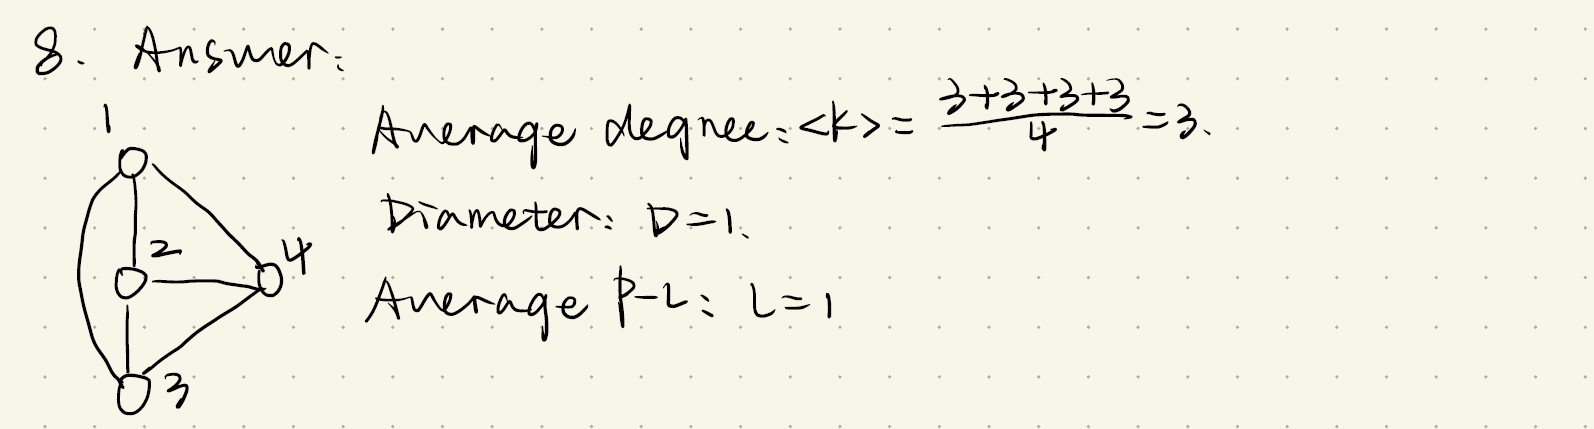 8. Answer:
1
Average degree: <k> = (3+3+3+3)/4 = 3.
Diameter: D=1.
2
4
Average P-L: L=1
3